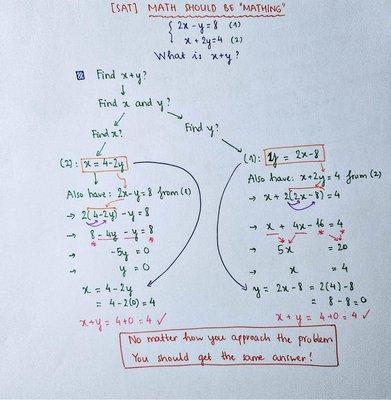 [SAT] MATH SHOULD BE "MATHING"
2x - y = 8 (1)
x + 2y = 4 (2)
What is x+y?
Find x+y?
Find x and y?
Find x?
Find y?
(2): x = 4-2y
Also have: 2x-y = 8 from (1)
→ 2(4-2y) - y = 8
→ 8 - 4y - y = 8
→ -5y = 0
→ y = 0
x = 4-2y
= 4-2(0) = 4
x+y = 4+0 = 4 ✓
(1): y = 2x-8
Also have: x+2y = 4 from (2)
→ x + 2(2x-8) = 4
→ x + 4x - 16 = 4
→ 5x = 20
→ x = 4
y = 2x-8 = 2(4)-8
= 8-8=0
x+y = 4+0 = 4 ✓
No matter how you approach the problem
You should get the same answer!